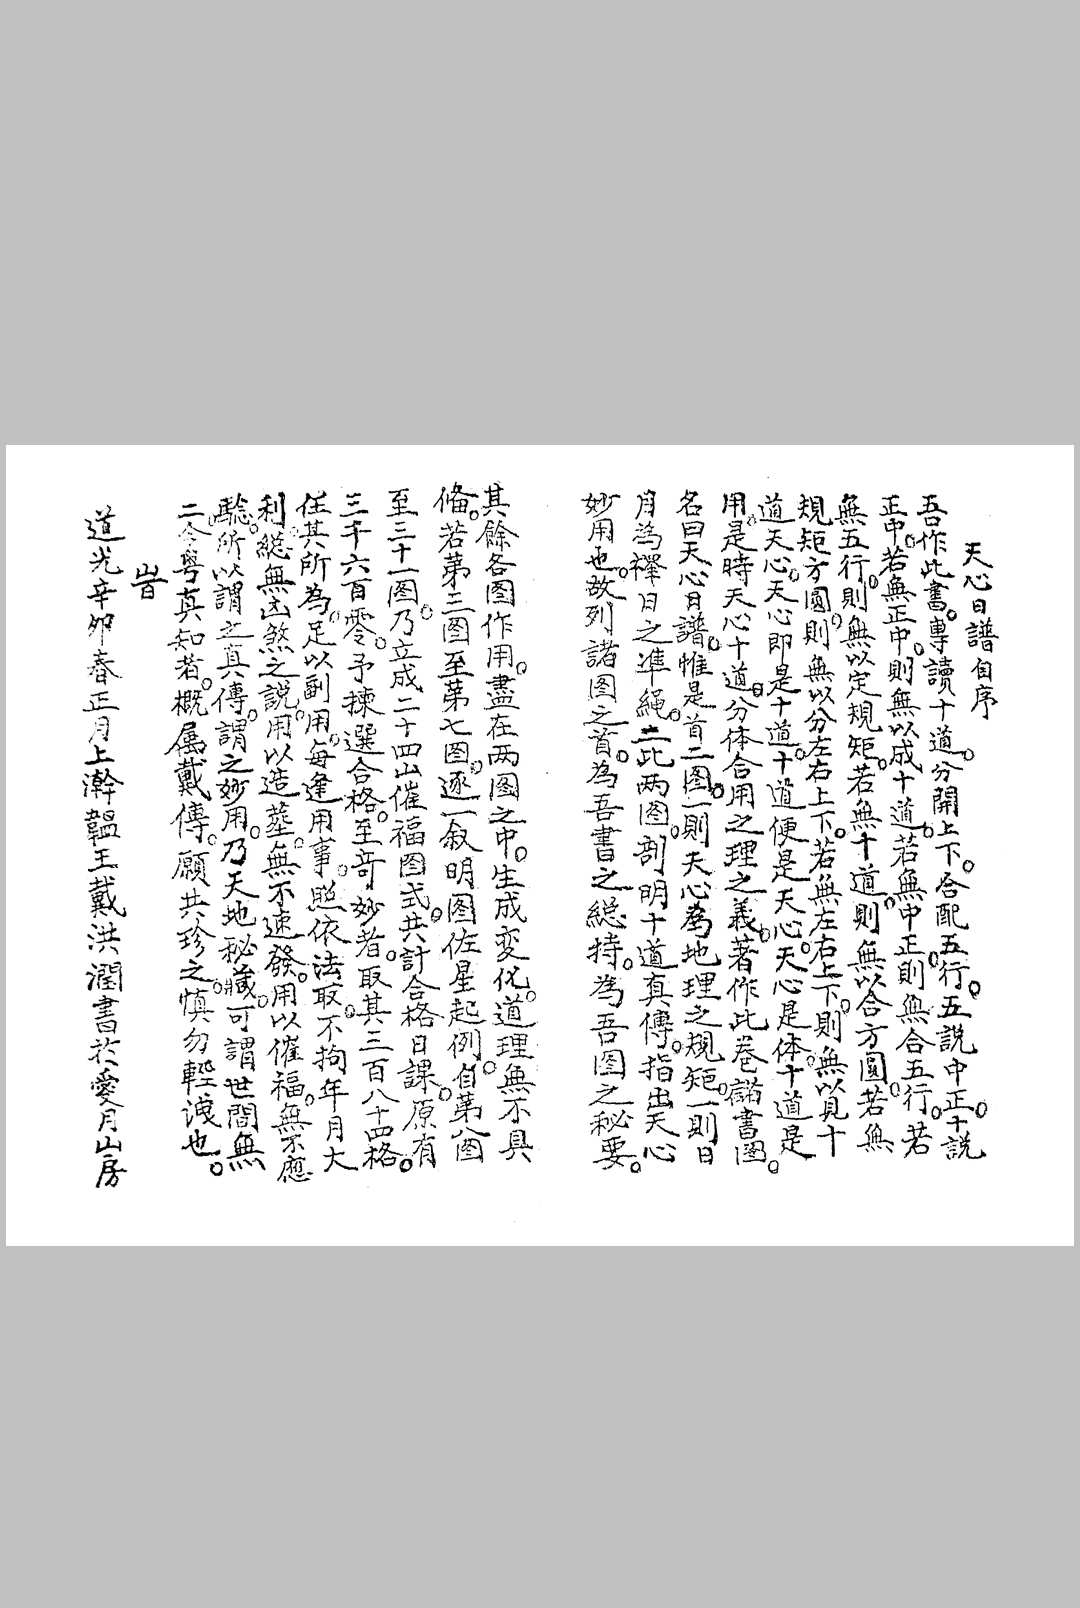 天心日譜自序
吾作此書。專讀十道。分開上下。合配五行。五說中正。十說
正中。若無正中。則無以成十道。若無中正則無合五行。若
無五行。則無以定規矩。若無十道。則無以合方圓。若無
規矩方圓。則無以分左右上下。若無左右上下。則無以見十
道天心。天心即是十道。十道便是天心。天心是体。十道是
用。是時天心十道。分体合用之理之義。著作此卷諸書圖。
名曰天心日譜。惟是首二图。一則天心為地理之規矩。一則日
月為禪日之準繩。此两图。剖明十道真傳。指出天心
妙用也。故列諸图之首。為吾書之総持。為吾图之秘要。
其餘各图作用。盡在两图之中。生成变化。道理無不具
偹。若第三图至第七图。逐一叙明图佐星起例。自第八图
至三十一图。乃立成二十四山催福图式。共計合格日課。原有
三千六百零。予揀選合格。至竒妙者。取其三百八十四格。
任其所為。足以副用。每逢用事。照依法取。不拘年月大
利。総無凶煞之說。用以造塟。無不速發。用以催福。無不應
騐。所以謂之真傳。謂之妙用。乃天地秘藏。可謂世間無
二。今粤真知者。概属戴傳。願共珍之。慎勿輕洩也。
旹
道光辛卯春正月上澣韞玉戴洪潤書於愛月山房